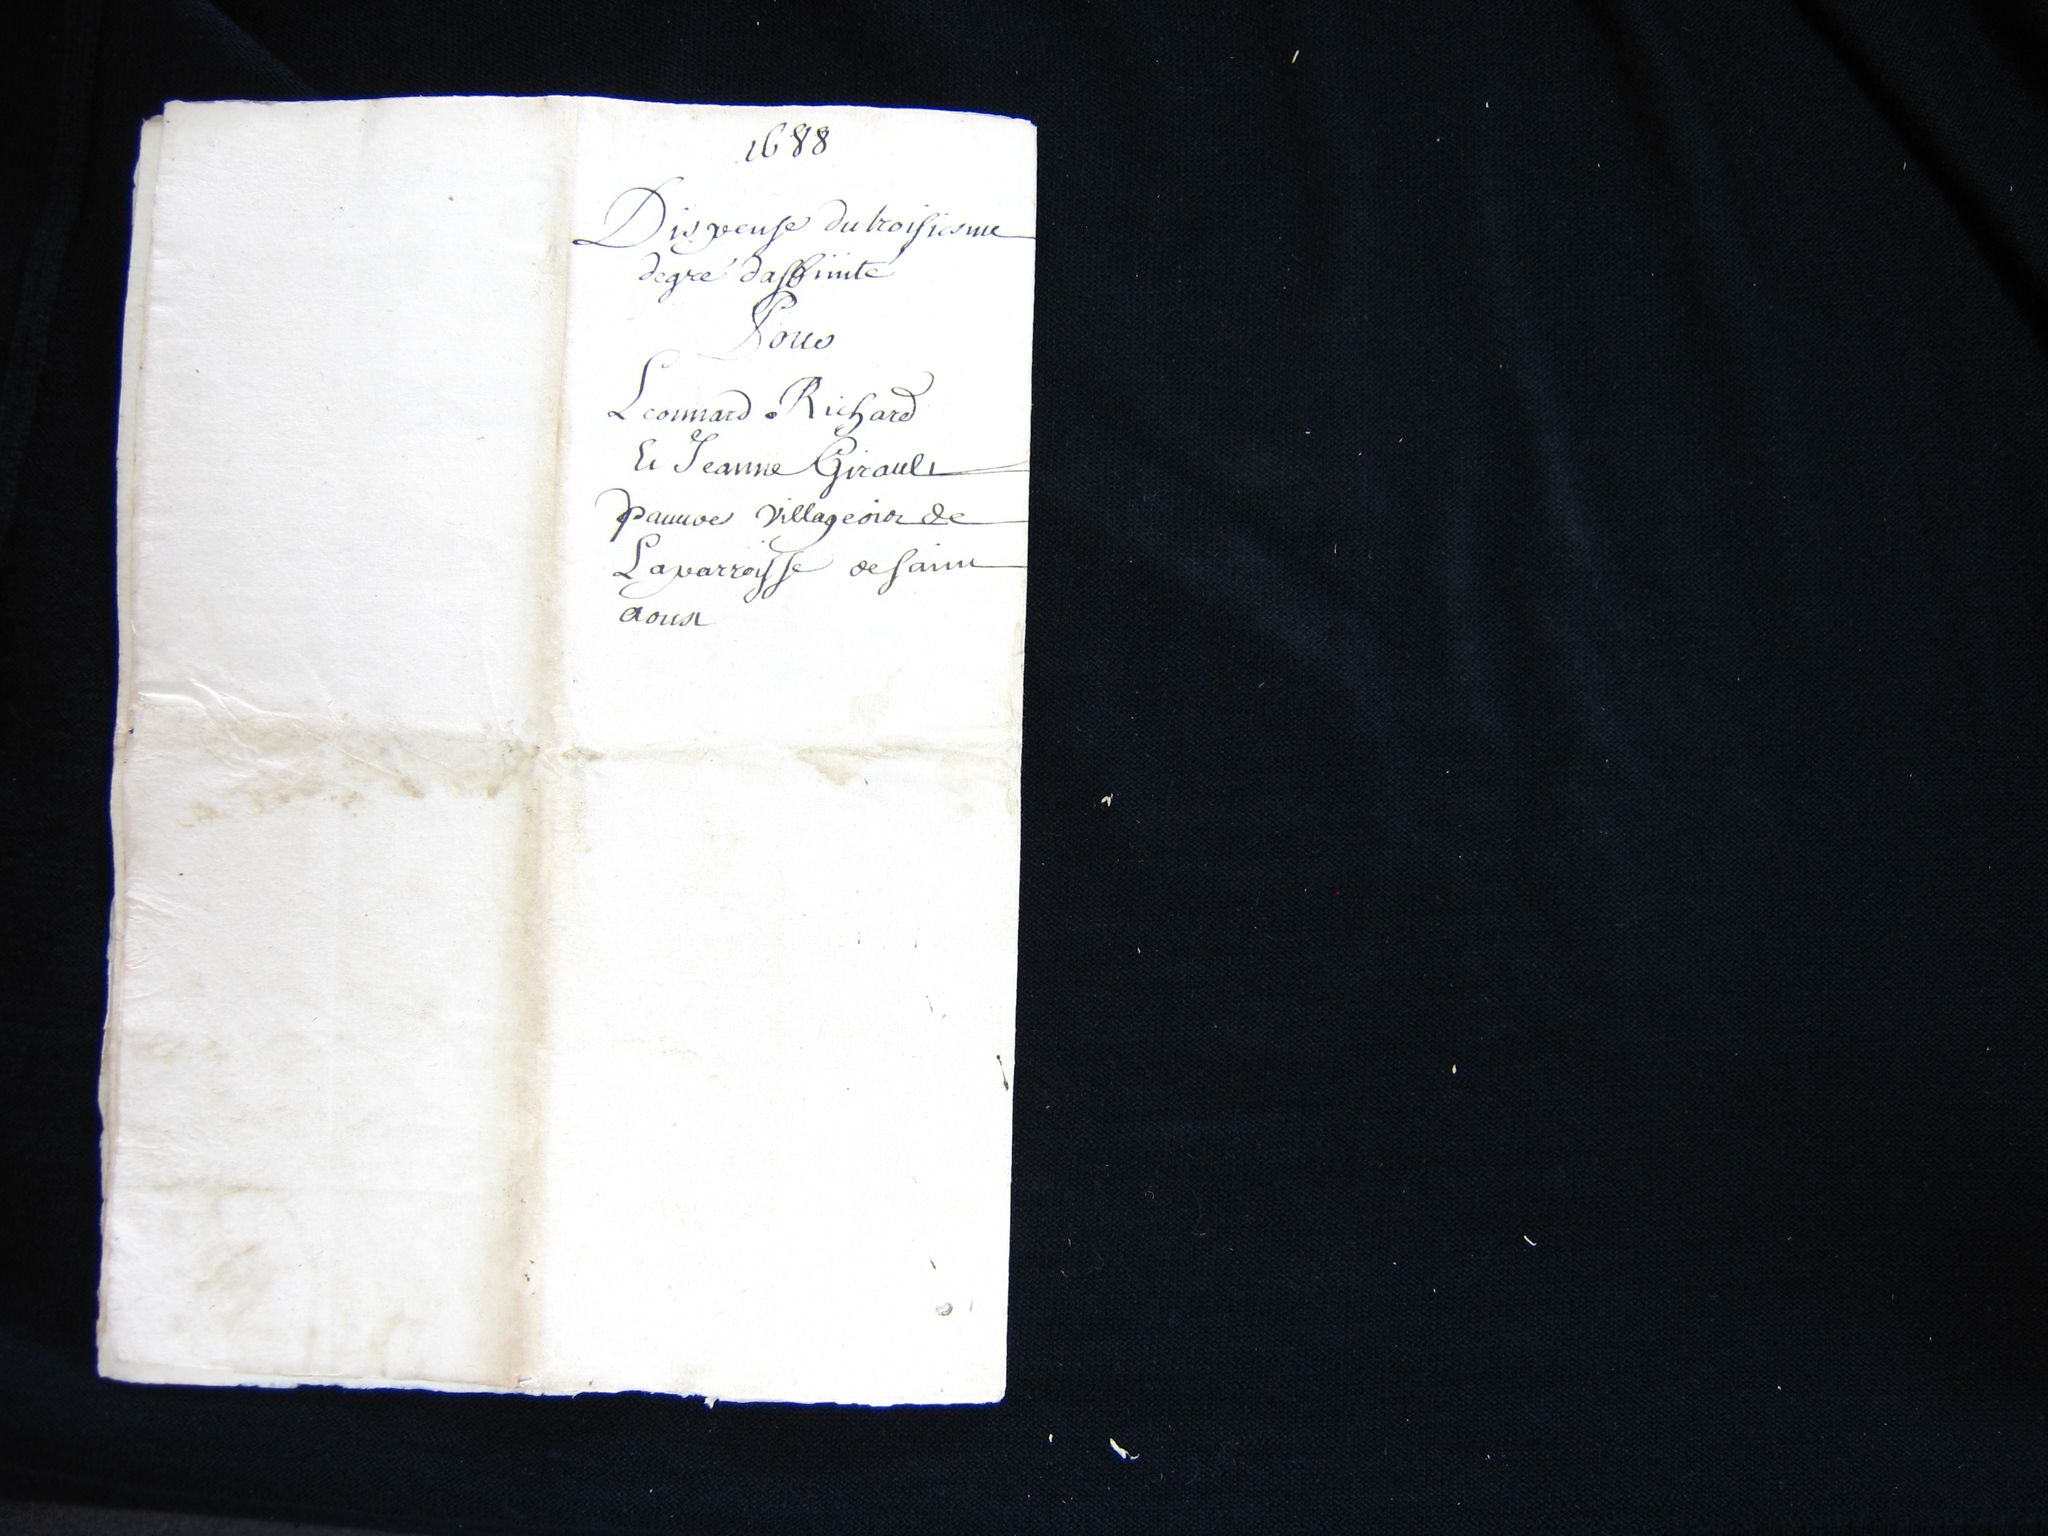 1688
Dispense du troisiesme
degré daffinité
Pour
Leonnard Richard
Et Jeanne Girault
pauures villageois de
La parroisse de saint
aoust